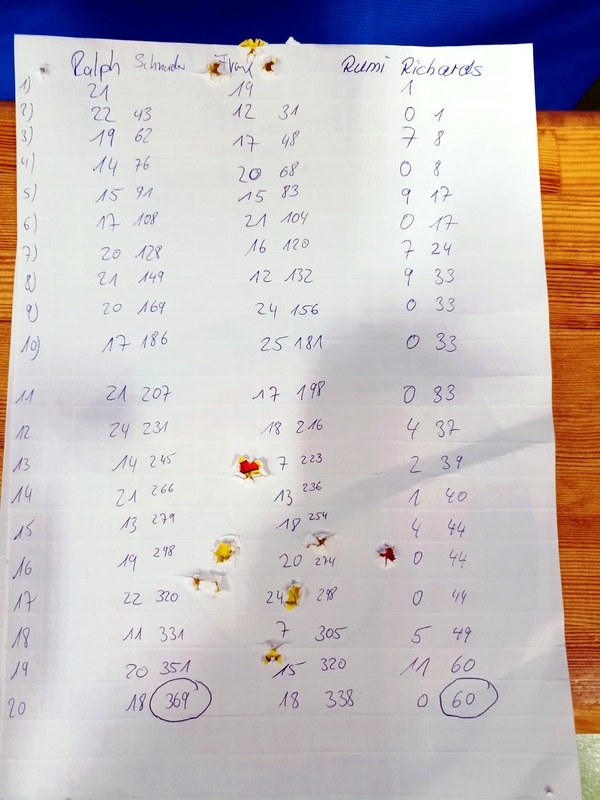 Ralph Schneider Frank Rumi Richards
1) 21 19 1
2) 22 43 12 31 0 1
3) 19 62 17 48 7 8
4) 14 76 20 68 0 8
5) 15 91 15 83 9 17
6) 17 108 21 104 0 17
7) 20 128 16 120 7 24
8) 21 149 12 132 9 33
9) 20 169 24 156 0 33
10) 17 186 25 181 0 33
11 21 207 17 198 0 33
12 24 231 18 216 4 37
13 14 245 7 223 2 39
14 21 266 13 236 1 40
15 13 279 18 254 4 44
16 19 298 20 274 0 44
17 22 320 24 298 0 44
18 11 331 7 305 5 49
19 20 351 15 320 11 60
20 18 369 18 338 0 60